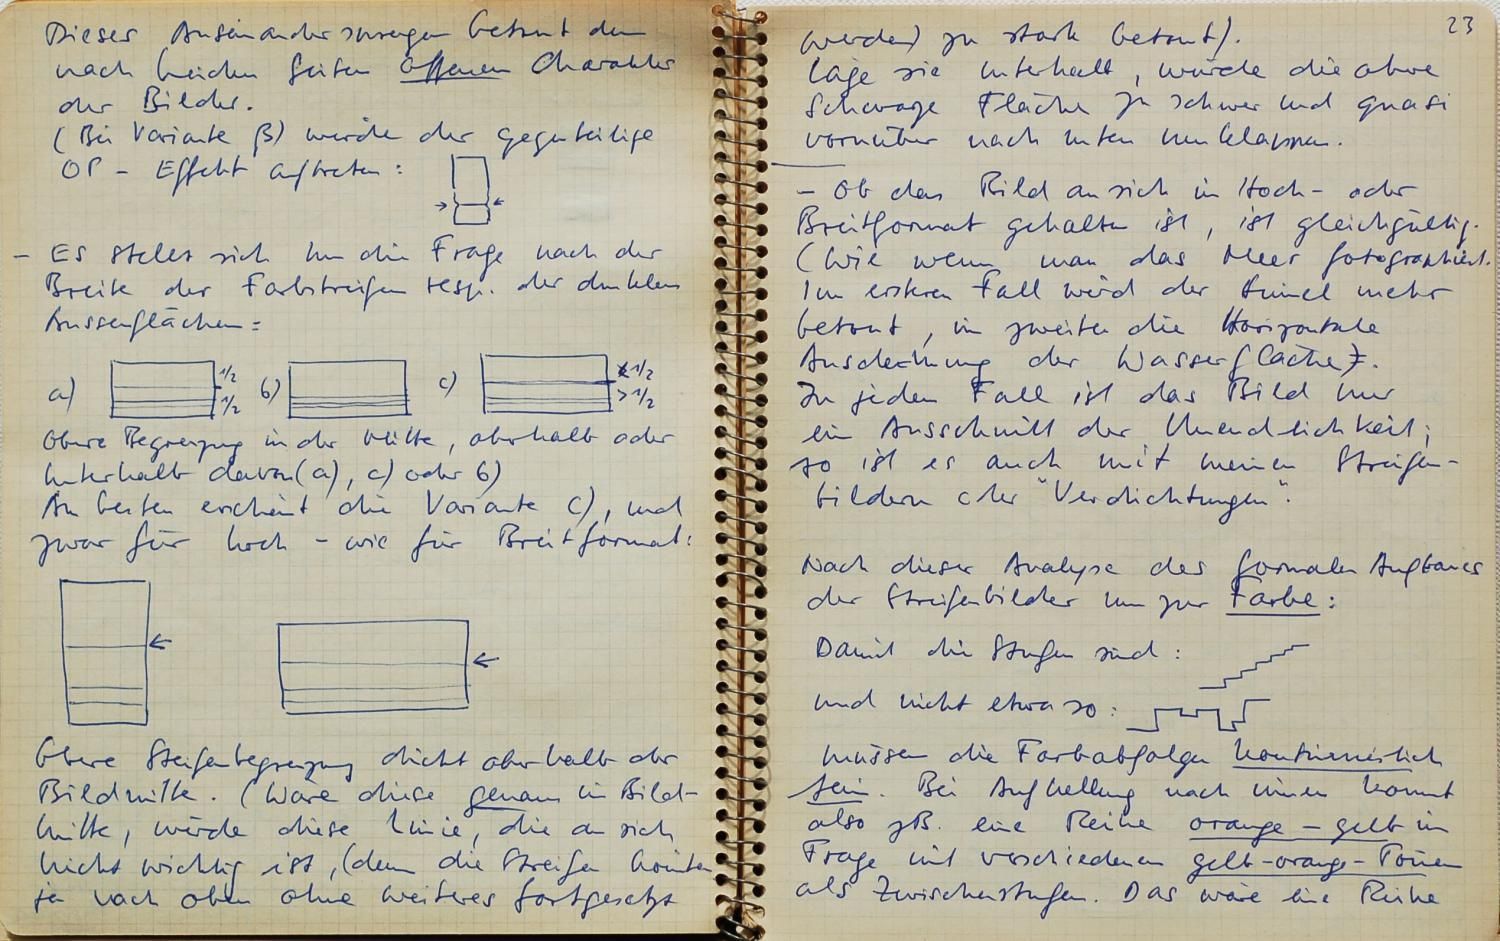 Dieses Auseinanderzwengen betont den
nach beiden Seiten offenen Charakter
der Bilder.
(Bei Variante β) würde der gegenteilige
OP - Effekt auftreten:
- Es stellt sich nun die Frage nach der
Breite der Farbstreifen resp. der dunklen
Aussenflächen:
a) 1/2 1/2 b) c) 1/2 > 1/2
obere Begrenzung in der Mitte, oberhalb oder
unterhalb davon (a), c) oder b)
Am besten erscheint die Variante c), und
zwar für hoch - wie für Breitformat:
Obere Streifenbegrenzung dicht oberhalb der
Bildmitte. (Wäre diese genau in Bild-
mitte, würde diese Linie, die an sich
nicht wichtig ist, (denn die Streifen könnten
ja nach oben ohne weiteres fortgesetzt
23
werden) zu stark betont).
Läge sie unterhalb, würde die obere
schwarze Fläche zu schwer und quasi
vornüber nach unten umklappen.
- Ob das Bild an sich in Hoch- oder
Breitformat gehalten ist, ist gleichgültig.
(Wie wenn man das Meer fotographiert.
Im ersteren Fall wird der Himmel mehr
betont, im zweiten die Horizontale
Ausdehnung der Wasserfläche).
In jedem Fall ist das Bild nur
ein Ausschnitt der Unendlichkeit;
so ist es auch mit meinen Streifen-
bildern oder "Verdichtungen".
Nach dieser Analyse des formalen Aufbaues
der Streifenbilder nun zur Farbe:
Damit die Stufen sind:
und nicht etwa so:
müssen die Farbabfolgen kontinuierlich
sein. Bei Aufhellung nach innen kommt
also zB. eine Reihe orange - gelb in
Frage mit verschiedenen gelb-orange-Tönen
als Zwischenstufen. Das wäre eine Reihe